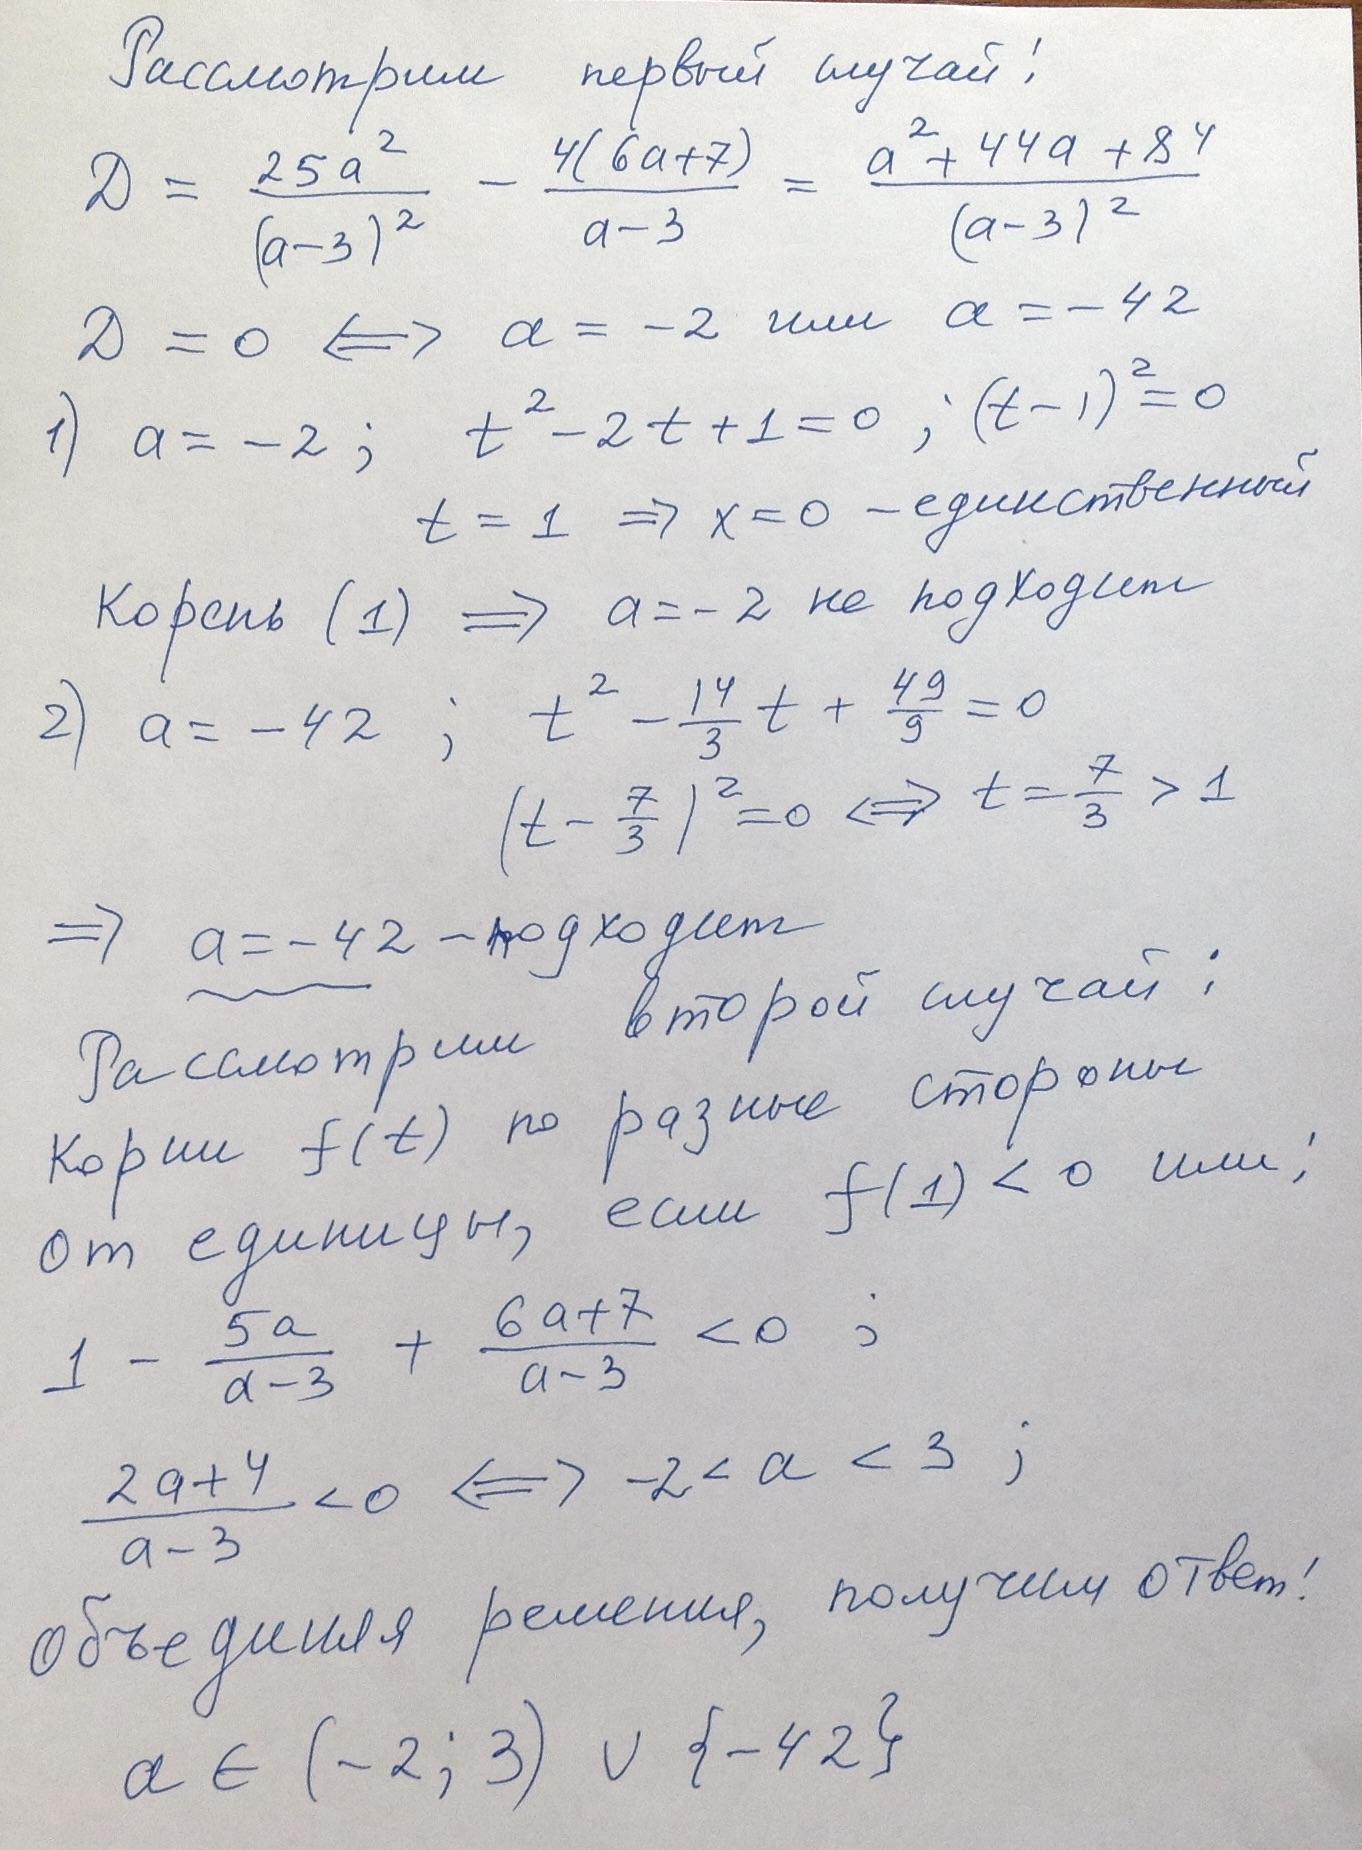 Рассмотрим первый случай:
D = 25a²/(a-3)² - 4(6a+7)/(a-3) = (a²+44a+84)/(a-3)²
D = 0 <=> a = -2 или a = -42
1) a = -2; t² - 2t + 1 = 0; (t-1)² = 0
t = 1 => x = 0 - единственный
корень (1) => a = -2 не подходит
2) a = -42; t² - 14/3 t + 49/9 = 0
(t - 7/3)² = 0 <=> t = 7/3 > 1
=> a = -42 - подходит
Рассмотрим второй случай:
Корни f(t) по разные стороны
от единицы, если f(1) < 0 или:
1 - 5a/(a-3) + (6a+7)/(a-3) < 0;
(2a+4)/(a-3) < 0 <=> -2 < a < 3;
Объединяя решения, получим ответ:
a ∈ (-2; 3) ∪ {-42}